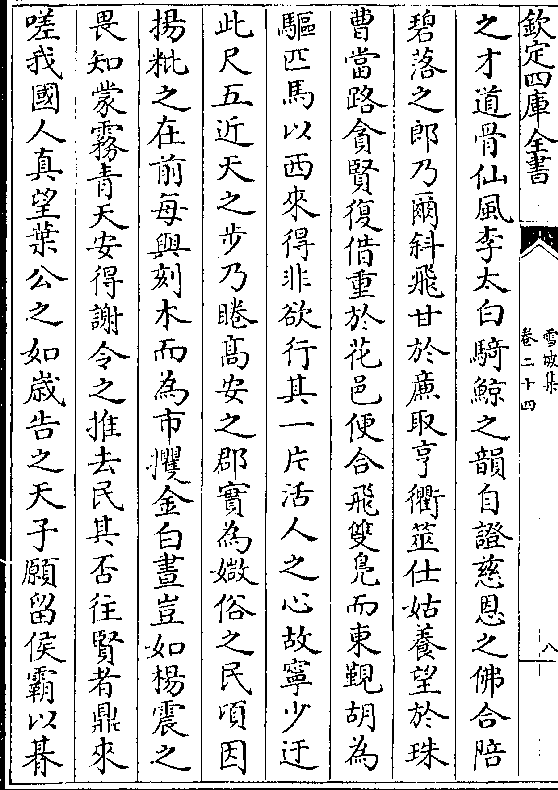 欽定四庫全書
雪坡集
卷二十四
八
之才道骨仙風李太白騎鯨之韻自證慈恩之佛合陪
碧落之郎乃爾斜飛甘於亷取亨衢筮仕姑養望於珠
曹當路貪賢復借重於花邑便合飛雙鳧而東覲胡為
驅匹馬以西來得非欲行其一片活人之心故寧少迂
此尺五近天之步乃睠髙安之郡實為媺俗之民頃因
揚粃之在前每興刻木而為市攫金白晝豈如楊震之
畏知蒙霧青天安得謝令之推去民其否往賢者鼎來
嗟我國人真望葉公之如歳告之天子願留侯霸以朞